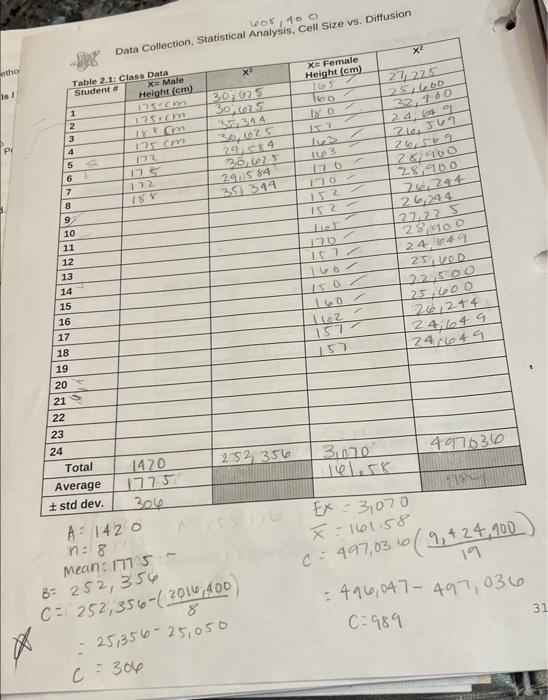 608,400
Data Collection, Statistical Analysis, Cell Size vs. Diffusion
Table 2.1: Class Data
Student # X= Male Height (cm) X² X= Female Height (cm) X²
1 175 cm 30,625 165 27,225
2 175 cm 30,625 160 25,600
3 188 cm 35,344 180 32,400
4 175 cm 30,625 157 24,649
5 172 29,584 163 26,569
6 175 30,625 163 26,569
7 172 29,584 170 28,900
8 188 35,344 170 28,900
9 152 26,244
10 152 26,244
11 165 27,225
12 170 28,900
13 157 24,649
14 160 25,600
15 150 22,500
16 160 25,600
17 162 26,244
18 157 24,649
19 157 24,649
20
21
22
23
24
Total 1420 252,356 3,070 497,036
Average 177.5 161.58
± std dev. 306
A: 1420
n: 8
mean: 177.5
B= 252,356
C= 252,356-(2016,400/8)
= 25,356-25,050
C = 306
EX = 3,070
X̄ = 161.58
C: 497,036(9,424,900/19)
= 496,047-497,036
C=989
31